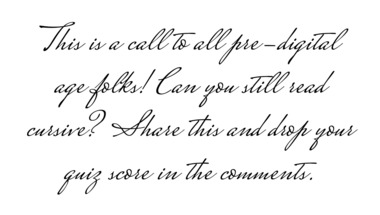 This is a call to all pre-digital
age folks! Can you still read
cursive? Share this and drop your
quiz score in the comments.